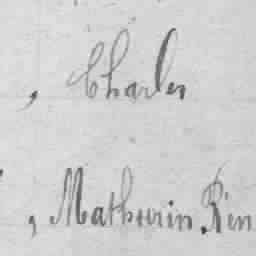 , Charles
, Mathurin Rien